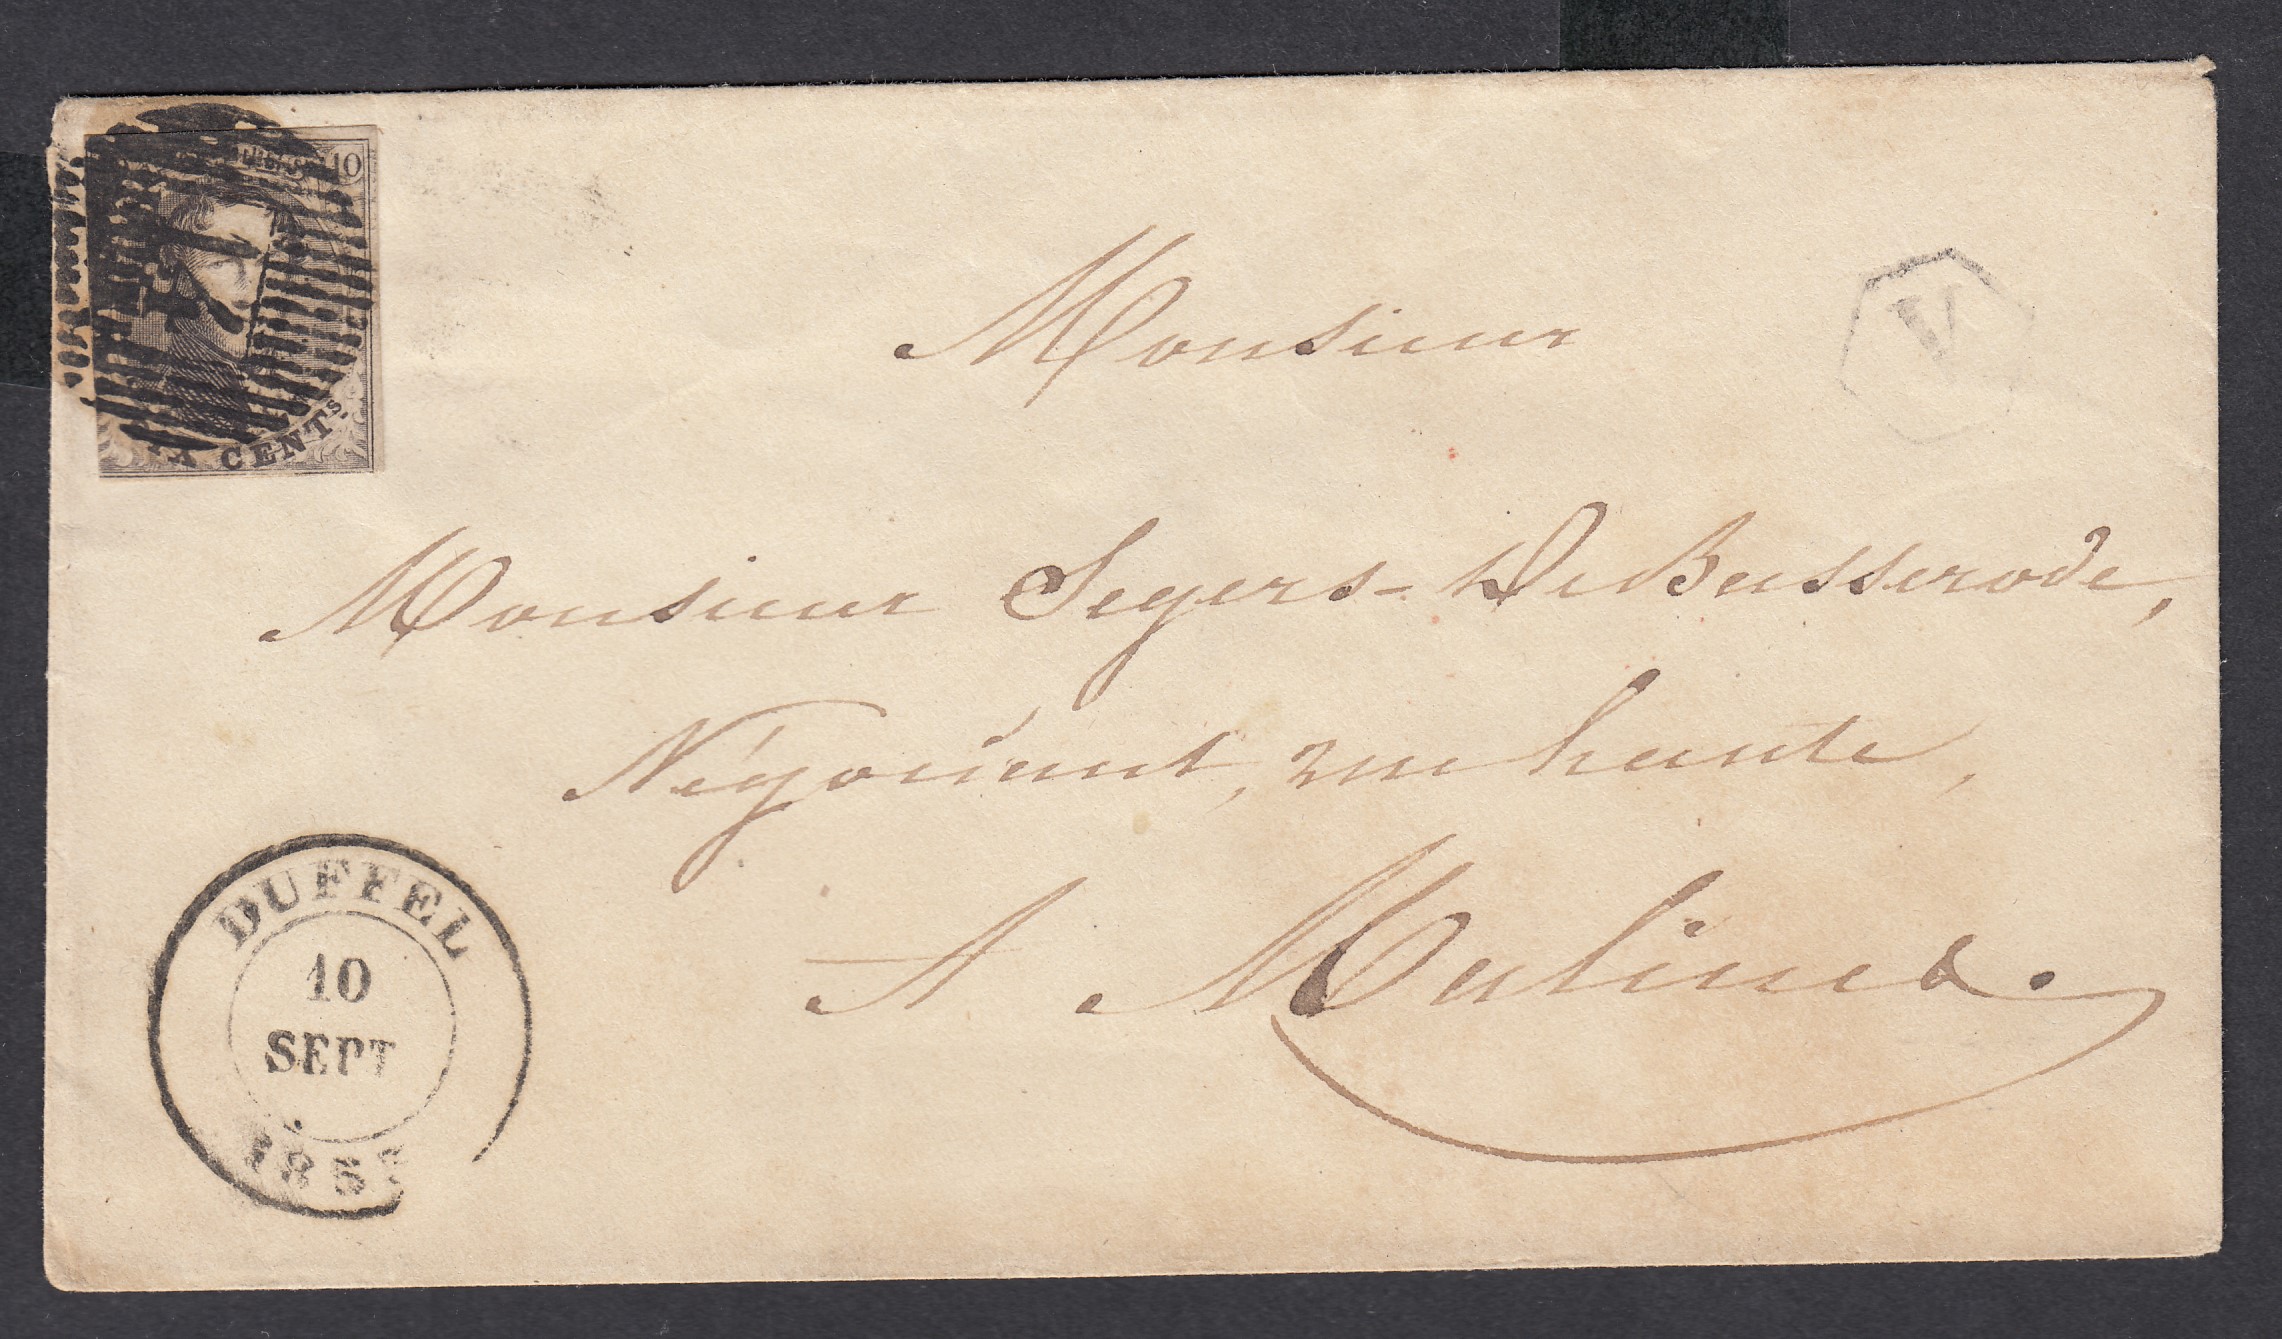 10
CENTS.
V
Monsieur
Monsieur Segers-DeBusserode,
Négociant, rue haute,
A Malines.
DUFFEL
10
SEPT